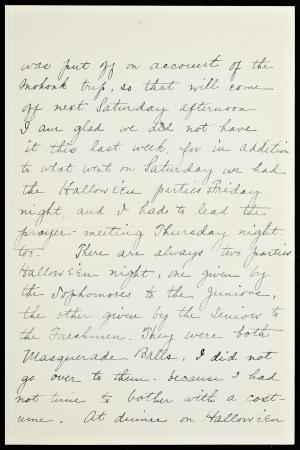 was put off on account of the
Mohonk trip, so that will come
off next Saturday afternoon.
I am glad we did not have
it this last week, for in addition
to what went on Saturday we had
the Hallowe'en parties Friday
night, and I had to lead the
prayer-meeting Thursday night
too. There are always two parties
Hallowe'en night, one given by
the Sophomores to the Juniors,
the other given by the Seniors to
the Freshmen. They were both
Masquerade Balls. I did not
go over to them because I had
not time to bother with a cost-
ume. At dinner on Hallowe'en